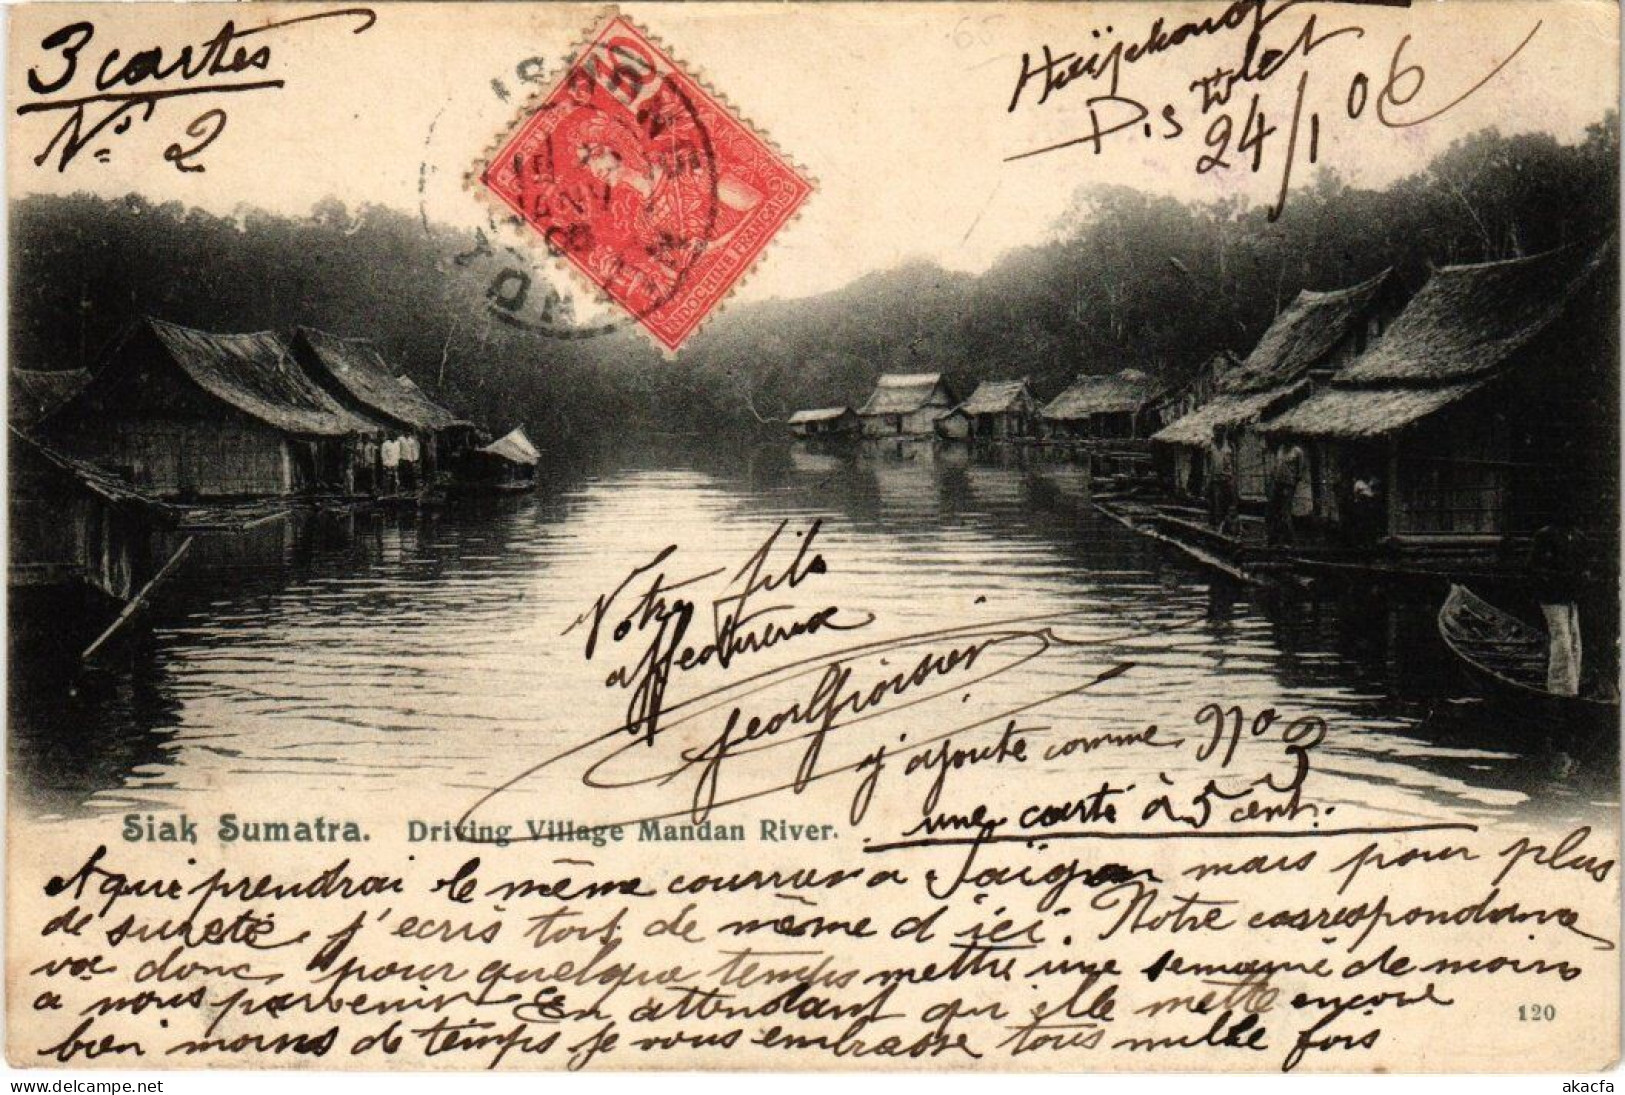 3 cartes
N° 2
Haïphong
24/1 06
INDOCHINE FRANÇAISE
Votre fils
affectueux
j'ajoute comme N° 3
une carte à 5 cent.
Siak Sumatra. Driving Village Mandan River.
et qui prendrai le même courrier a Saïgon mais pour plus
de sureté j'ecris tout de même d'ici. Notre correspondance
va donc pour quelque temps mettre une semaine de moins
a nous parvenir En attendant qu'elle mette encore
bien moins de temps je vous embrasse tous mille fois
120
delcampe.net
akacfa